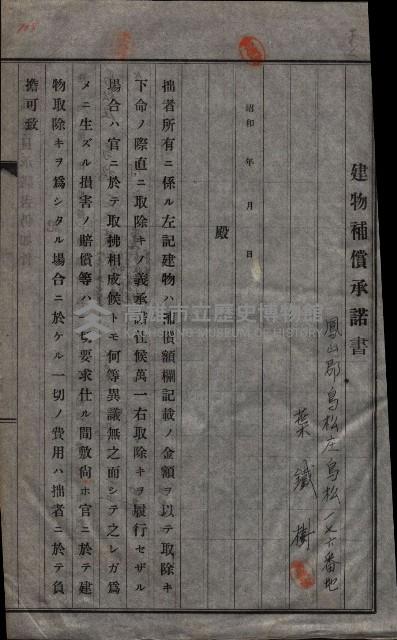 建物補償承諾書
鳳山郡鳥松庄鳥松一七六番地
葉鐵樹
昭和 年 月 日
殿
拙者所有ニ係ル左記建物ハ補償額欄記載ノ金額ヲ以テ取除キ
下命ノ際直ニ取除キノ義承諾仕候萬一右取除キヲ履行セザル
場合ハ官ニ於テ取拂相成候トモ何等異議無之而シテ之レガ爲
メニ生ズル損害ノ賠償等ハ一切要求仕ル間敷尚ホ官ニ於テ建
物取除キヲ爲シタル場合ニ於ケル一切ノ費用ハ拙者ニ於テ負
擔可致
高雄市立歷史博物館